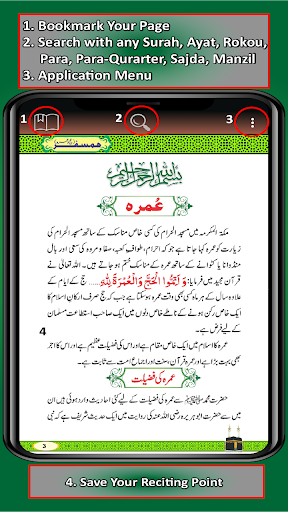 1. Bookmark Your Page
2. Search with any Surah, Ayat, Rokou,
Para, Para-Qurarter, Sajda, Manzil
3. Application Menu
1
2
3
ہمسفر
بسم اللہ الرحمن الرحیم
عُمرہ
مکۃ المکرمہ میں مسجد الحرام کی کسی خاص مناسک کے ساتھ مسجد الحرام کی
زیارت کو عمرہ کہا جاتا ہے جو کہ احرام، طواف کعبہ، صفا و مروہ کی سعی اور بال
منڈوانا یا کٹوانے کے ساتھ عمرہ کے مناسک ختم ہو جاتے ہیں۔ اللہ تعالیٰ نے
قرآن مجید میں فرمایا: وَ اَتِمُّوا الْحَجَّ وَالْعُمْرَةَ لِلّٰهِ ...... حج کے ایام کے
علاوہ سال کے ہر ماہ کسی بھی وقت عمرہ ہو سکتا ہے جب کہ حج صرف ارکان اسلام کا
کے لیے فرض ہے۔
4
عمرہ کا اسلام میں ایک خاص مقام ہے اور اس کی فضیلت عظیم ہے اور اس کا اجر
بھی بہت بڑا ہے اور عمرہ قرآن، سنت اور اجماع امت سے ثابت ہے۔
عمرہ کی فضیلت
حضرت محمد ﷺ سے عمرہ کی فضیلت کے لئے کئی احادیث وارد ہوئی ہیں ان
میں سے حضرت ابو ہریرہ رضی اللہ عنہ کی روایت میں ایک حدیث شریف ہے کہ نبی
3
4. Save Your Reciting Point